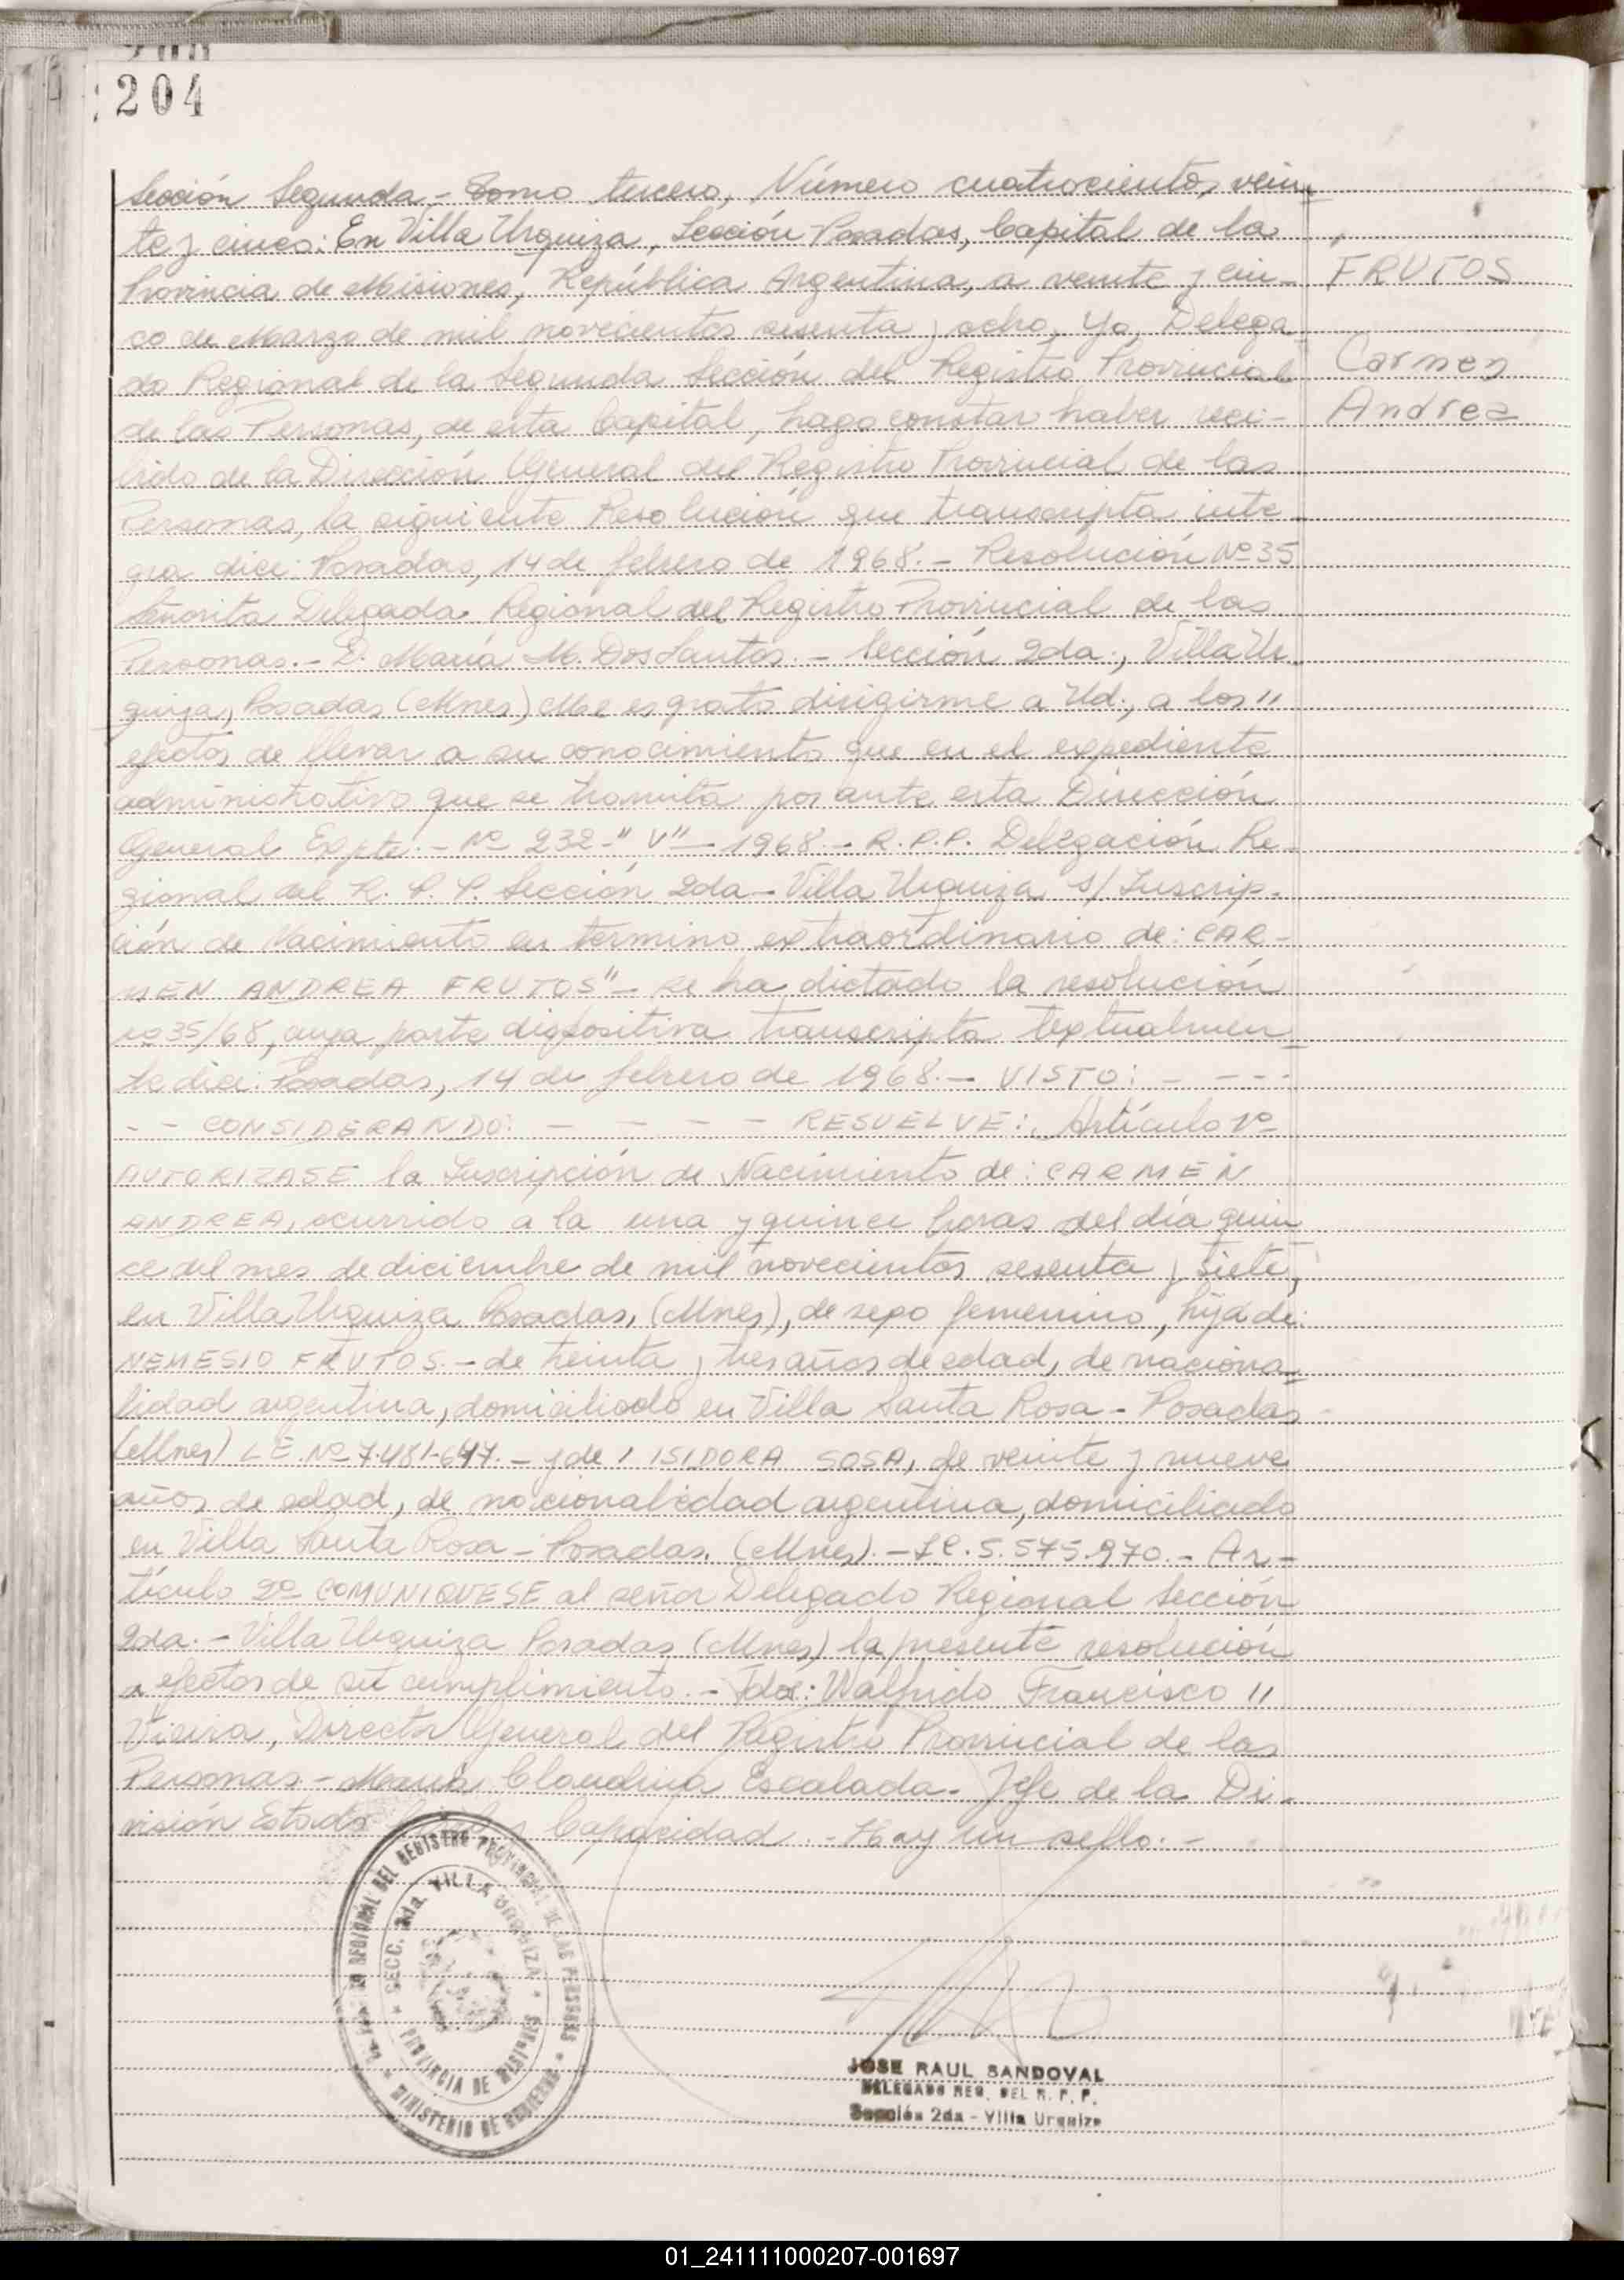 204
Sección Segunda.- Tomo tercero, Número cuatrocientos, vein-
te y cinco: En Villa Urquiza, Sección Posadas, Capital de la
Provincia de Misiones, República Argentina, a veinte y cin-
co de Marzo de mil novecientos sesenta y ocho, Yo, Delega-
do Regional de la Segunda Sección del Registro Provincial
de las Personas, de esta Capital, hago constar haber reci-
bido de la Dirección General del Registro Provincial de las
Personas, la siguiente Resolución que transcripta inte-
gra dice: Posadas, 14 de febrero de 1968.- Resolución Nº 35
Señorita Delegada Regional del Registro Provincial de las
Personas.- D. María M. Dos Santos.- Sección 2da., Villa Ur-
quiza, Posadas (Mnes) Me es grato dirigirme a Ud., a los "
efectos de llevar a su conocimiento que en el expediente
administrativo que se tramita por ante esta Dirección
General Expte.- Nº 232-"V"- 1968.- R.P.P. Delegación Re-
gional del R.P.P. Sección 2da- Villa Urquiza s/ Inscrip-
ción de Nacimiento en termino extraordinario de: CAR-
MEN ANDREA FRUTOS"- se ha dictado la resolución
nº 35/68, cuya parte dispositiva transcripta textualmen-
te dice: Posadas, 14 de febrero de 1968.- VISTO: - - - -
- - CONSIDERANDO: - - - - RESUELVE: Artículo 1º
AUTORIZASE la Inscripción de Nacimiento de: CARMEN
ANDREA, ocurrido a la una y quince horas del día quin
ce del mes de diciembre de mil novecientos sesenta y siete,
en Villa Urquiza Posadas, (Mnes), de sexo femenino, hija de:
NEMESIO FRUTOS.- de treinta y tres años de edad, de naciona-
lidad argentina, domiciliado en Villa Santa Rosa - Posadas
(Mnes) L.E. Nº 7.481.647.- y de ISIDORA SOSA, de veinte y nueve
años de edad, de nacionalidad argentina, domiciliado
en Villa Santa Rosa - Posadas. (Mnes).- L.C. 5.575.970.- Ar-
tículo 2º COMUNIQUESE al señor Delegado Regional Sección
2da.- Villa Urquiza Posadas (Mnes) la presente resolución
a efectos de su cumplimiento.- Fdo: Walfrido Francisco "
Vieira, Director General del Registro Provincial de las
Personas - María Claudina Escalada. Jefe de la Di-
visión Estado Capacidad.- Hay un sello.-
FRUTOS
Carmen
Andrea
REGIONAL DEL REGISTRO PROVINCIAL DE LAS PERSONAS
SECC. 2da. VILLA URQUIZA
PROVINCIA DE MISIONES
MINISTERIO DE GOBIERNO
JOSE RAUL SANDOVAL
DELEGADO REG. DEL R. P. P.
Sección 2da - Villa Urquiza
01_241111000207-001697